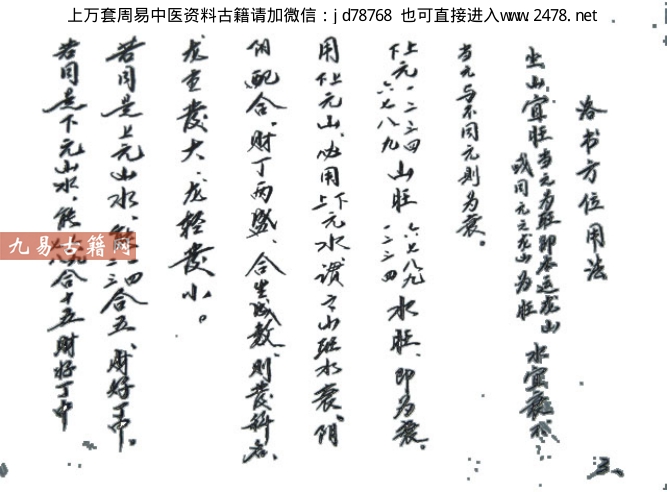 上万套周易中医资料古籍请加微信：jd78768 也可直接进入www.2478.net
洛书方位用法
坐山宜旺 当元为旺即本运龙山 或同元之龙山为旺 水宜衰水
当元与不同元则为衰。
上元一二三四 下元六七八九 山旺 六七八九 一二三四 水旺、即为衰。
用上下元山、必用上下元水 谓之山旺水衰、阴
阳配合、财丁两盛、合生成数、则发科名、
龙重发大、龙轻发小。
若同是上元山水、能一四二三合五、财好丁中。
若同是下元山水、能 合十五财好丁中
九易古籍网
三、